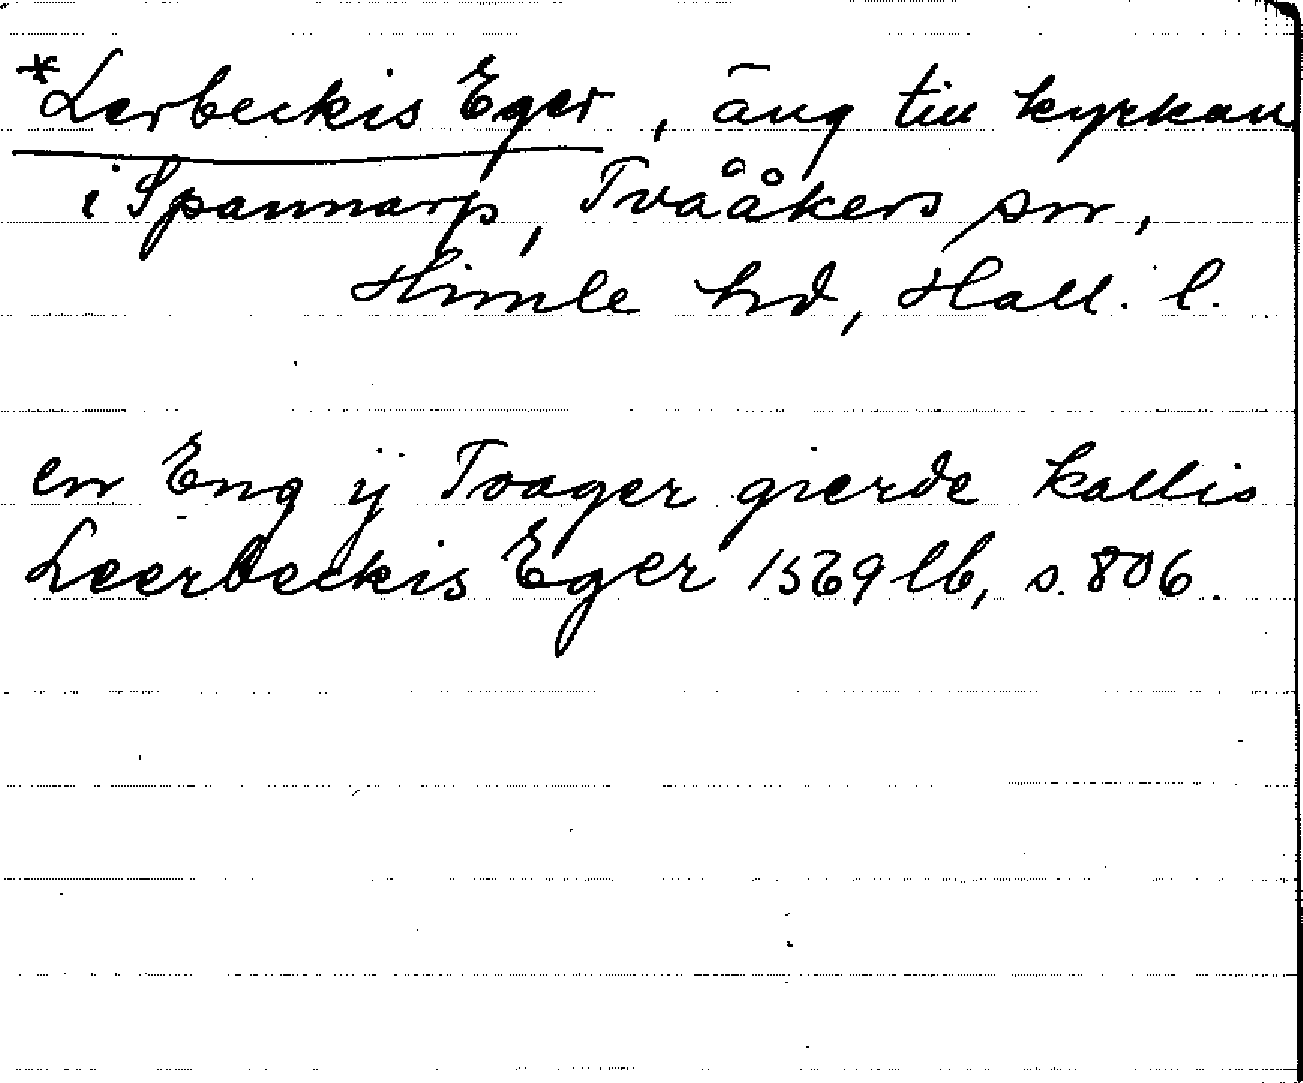 *Lerbeckis Eger, äng till kyrkan
i Spannarp, Tvååkers sn,
Himle hd, Hall. l.
en Eng ÿ Tvager gierde kallis
Leerbeckis Eger 1569 lb, s. 806.